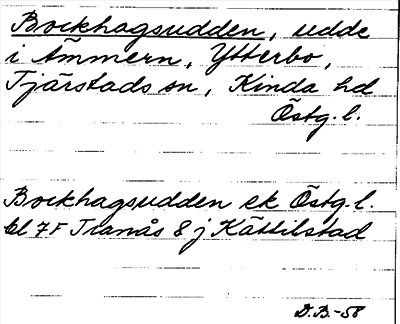 Bockhagsudden, udde
i Ämmern, Ytterbo,
Tjärstads sn, Kinda hd
Östg. l.
Bockhagsudden ek Östg. l.
bl 7F Tranås 8 j Kättilstad
D.B.-58